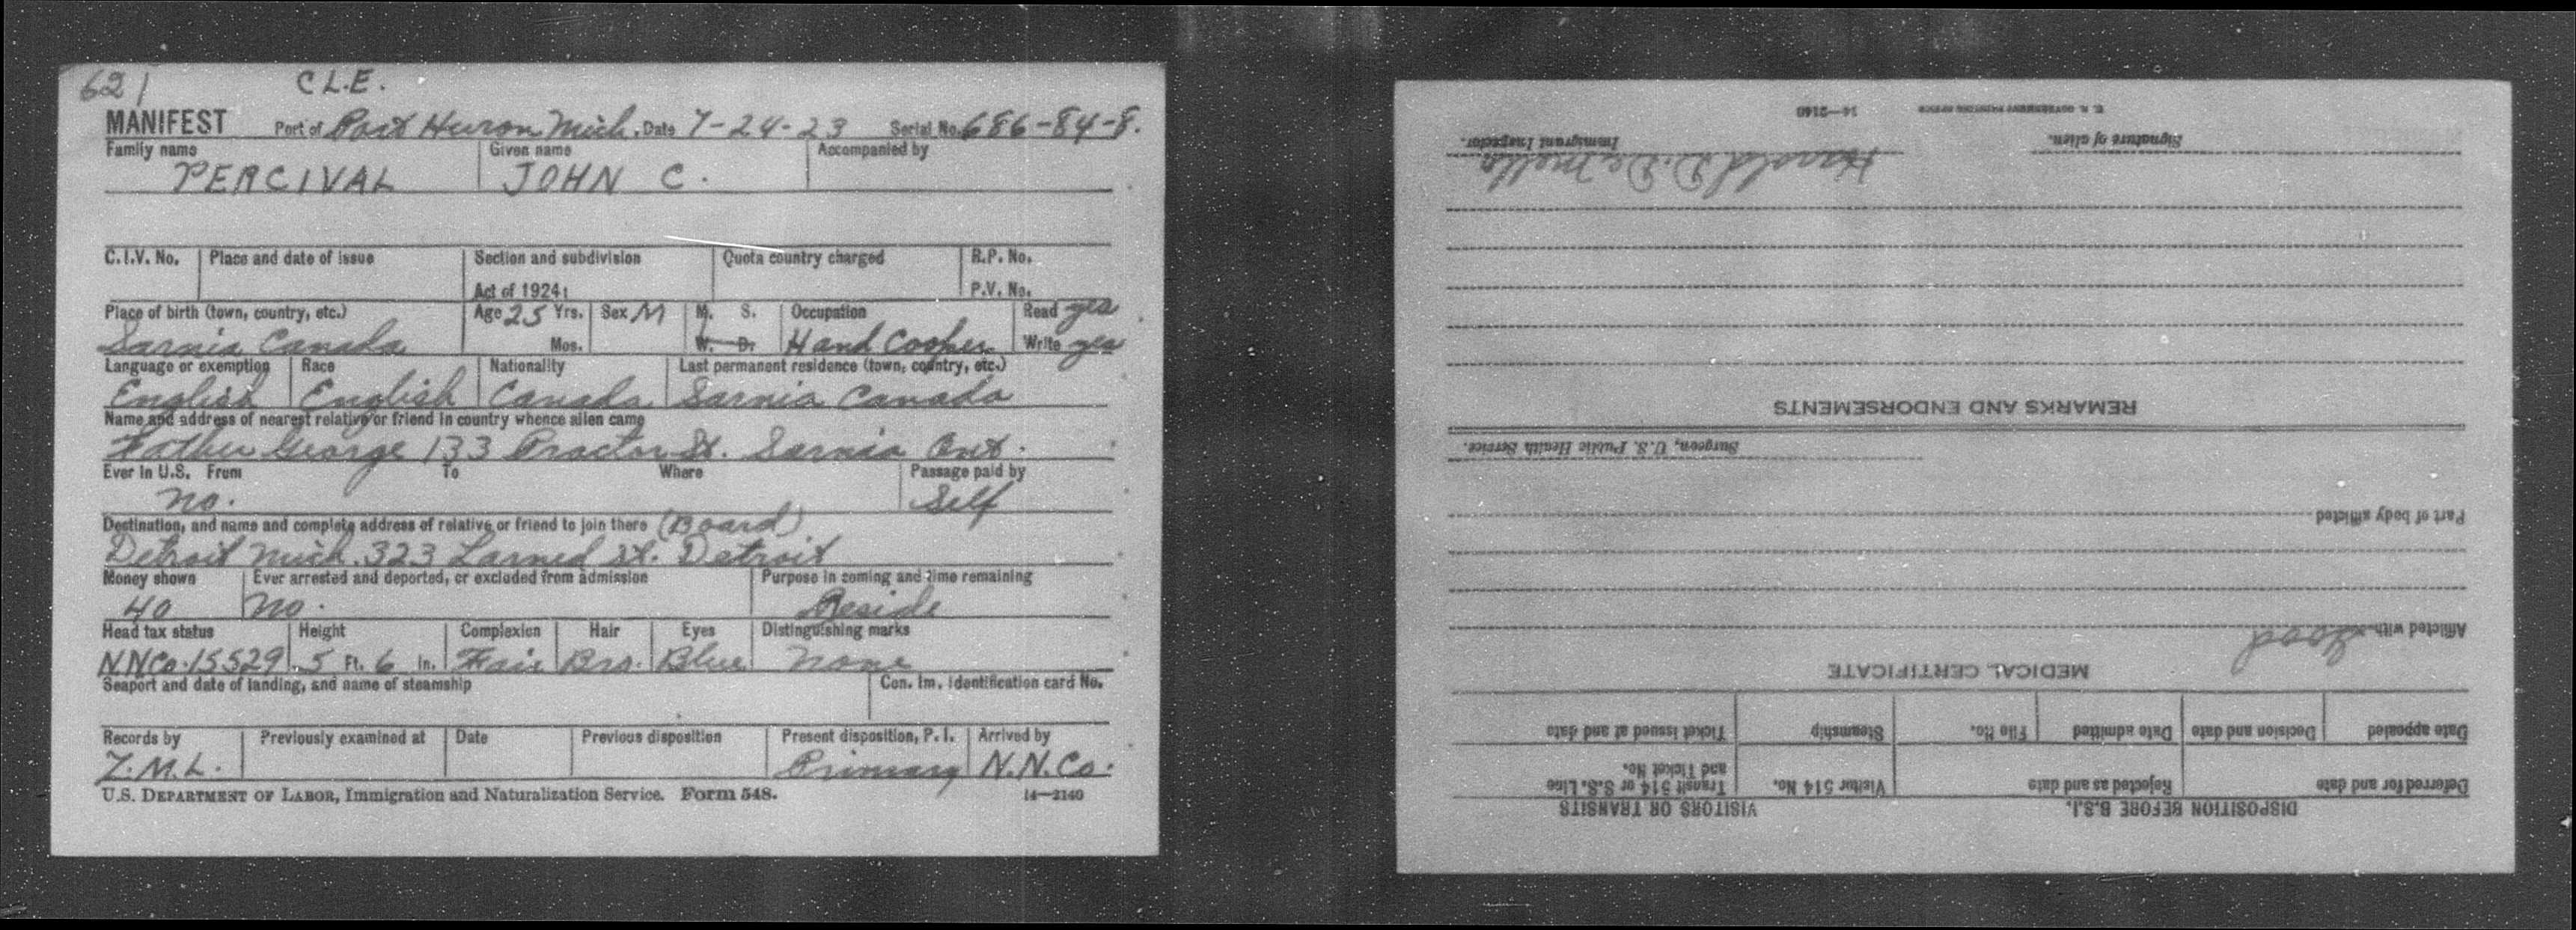 621 C L.E.
MANIFEST Port of Port Huron Mich. Date 7-24-23 Serial No. 686-84-8.
Family name Given name Accompanied by
PERCIVAL JOHN C.
C.I.V. No. Place and date of issue Section and subdivision Quota country charged R.P. No.
Act of 1924: P.V. No.
Place of birth (town, country, etc.) Age 25 Yrs. Sex M M. S. Occupation Read yes
Sarnia Canada Mos. W. D. Hand Cooper Write yes
Language or exemption Race Nationality Last permanent residence (town, country, etc.)
English English Canada Sarnia Canada
Name and address of nearest relative or friend in country whence alien came
Father George 133 Proctor St. Sarnia Ont.
Ever in U.S. From To Where Passage paid by
No. Self
Destination, and name and complete address of relative or friend to join there (Board)
Detroit Mich. 323 Larned St. Detroit
Money shown Ever arrested and deported, or excluded from admission Purpose in coming and time remaining
40 No. Reside
Head tax status Height Complexion Hair Eyes Distinguishing marks
N.N.Co. 15529 5 Ft. 6 In. Fair Bro. Blue None
Seaport and date of landing, and name of steamship Con. Im. Identification card No.
Records by Previously examined at Date Previous disposition Present disposition, P. I. Arrived by
Z.M.L. Primary N.N.Co.
U.S. DEPARTMENT OF LABOR, Immigration and Naturalization Service. Form 548. 14—2140
DISPOSITION BEFORE B.S.I. VISITORS OR TRANSITS
Deferred for and date Rejected as and date Visitor 514 No. Transit 514 or S.S. Line
and Ticket No.
Date appealed Decision and date Date admitted File No. Steamship Ticket issued at and date
MEDICAL CERTIFICATE
Afflicted with Good
Part of body afflicted
Surgeon, U.S. Public Health Service.
REMARKS AND ENDORSEMENTS
Harold D. DeMello
Signature of alien. Immigrant Inspector.
U. S. GOVERNMENT PRINTING OFFICE 14—2140